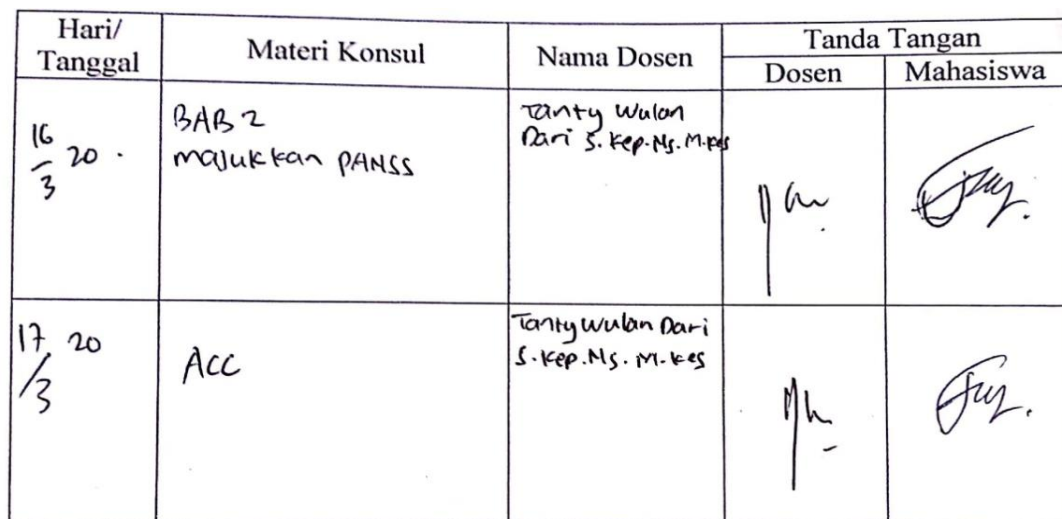 Hari/
Tanggal
Materi Konsul
Nama Dosen
Tanda Tangan
Dosen
Mahasiswa
16/3 20.
BAB 2
masukkan PANSS
Tanty Wulan
Dari S.Kep.Ns.M.Kes
17/3 20
ACC
Tanty Wulan Dari
S.Kep.Ns.M.Kes